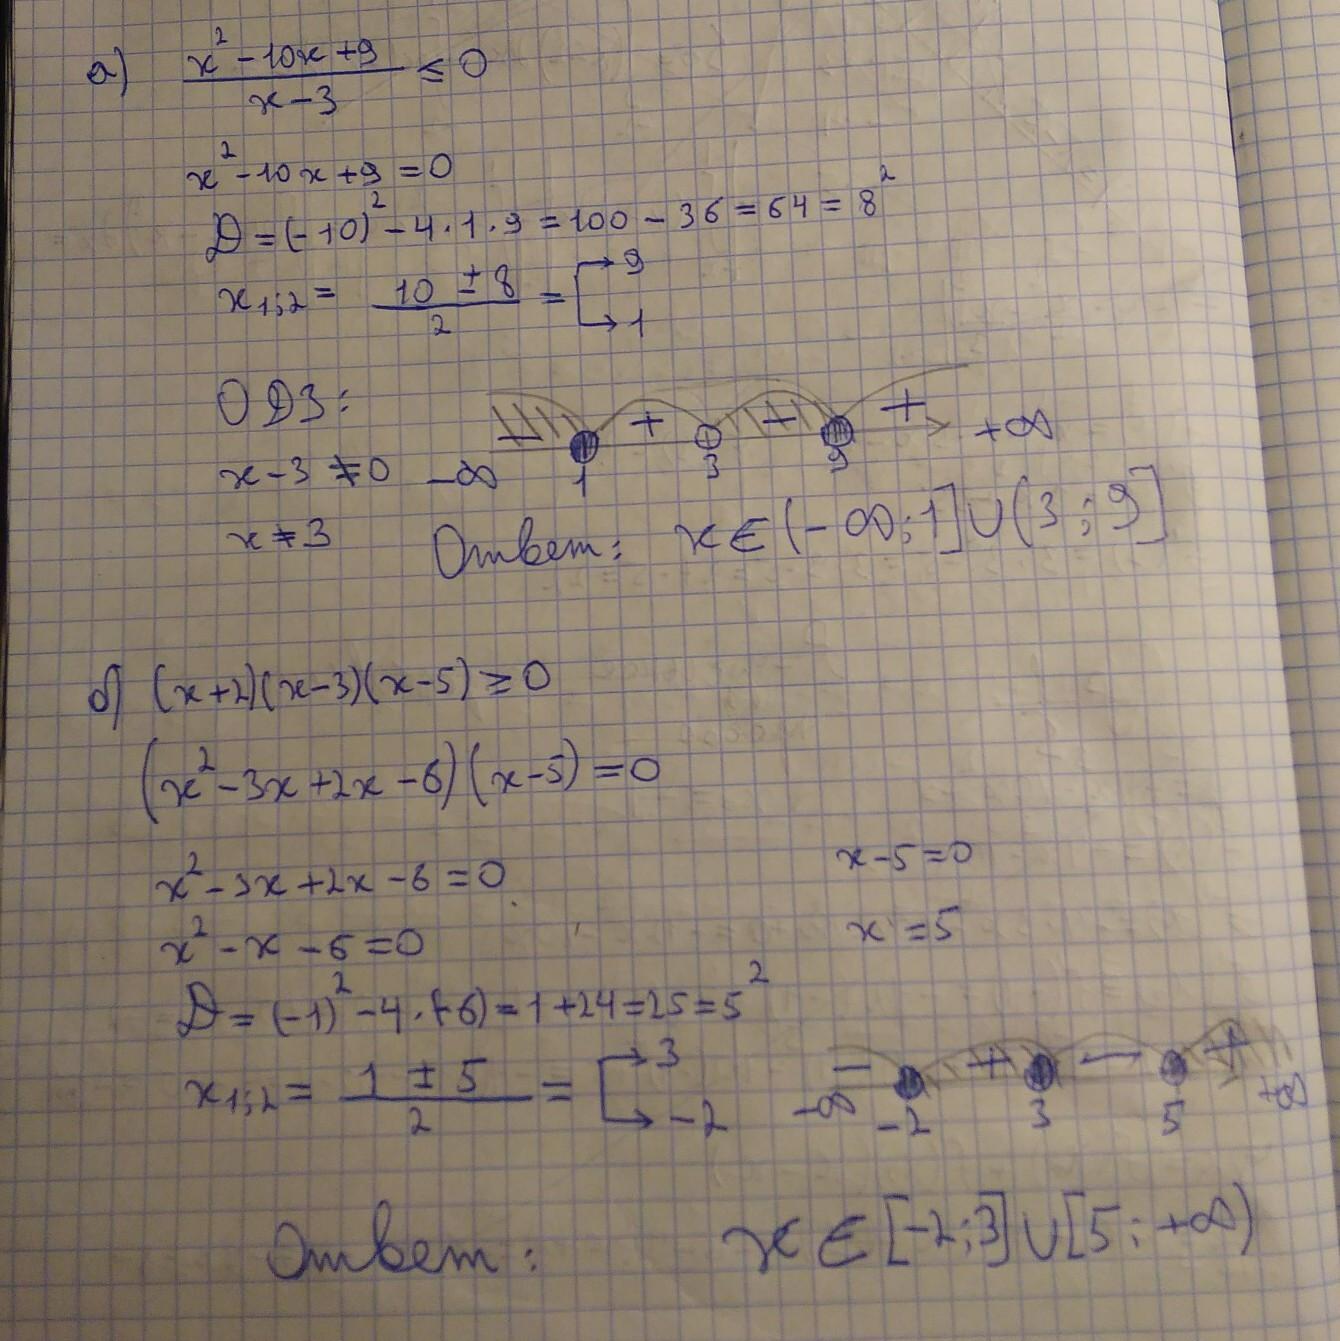 а) (x² - 10x + 9)/(x - 3) ≤ 0
x² - 10x + 9 = 0
D = (-10)² - 4 · 1 · 9 = 100 - 36 = 64 = 8²
x₁;₂ = (10 ± 8)/2 = [→ 9 → 1
ОДЗ:
x - 3 ≠ 0
x ≠ 3
- + - + +∞
-∞ 1 3 9
Ответ: x ∈ (-∞; 1] ∪ (3; 9]
б) (x+2)(x-3)(x-5) ≥ 0
(x² - 3x + 2x - 6)(x - 5) = 0
x² - 3x + 2x - 6 = 0
x - 5 = 0
x² - x - 6 = 0
x = 5
D = (-1)² - 4 · (-6) = 1 + 24 = 25 = 5²
x₁;₂ = (1 ± 5)/2 = [→ 3 → -2
- + - +
-∞ -2 3 5 +∞
Ответ: x ∈ [-2; 3] ∪ [5; +∞)